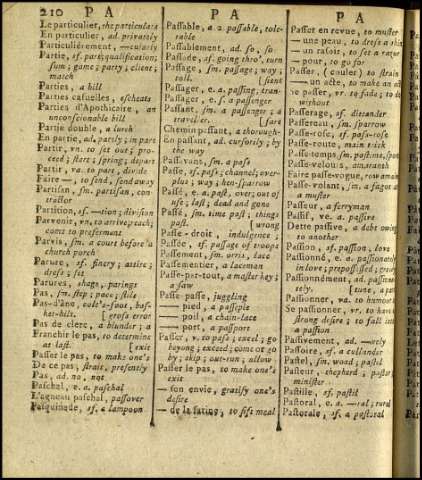 210 P A P A P A
Le particulier, the particulars
En particulier, ad. privately
Particuliérement, —cularly
Partie, sf. part; qualification;
sum; game; party; client;
match
Parties, a bill
Parties casuelles, escheats
Parties d'Apothicaire, an
unconscionable bill
Partie double, a lurch
En partie, ad. partly; in part
Partir, vn. to set out; pro-
ceed; start; spring; depart
Partir, va. to part, divide
Faire —, to send, send away
Partisan, sm. partisan, con-
tractor
Partition, sf. —tion; division
Parvenir, vn. to arrive; reach;
come to preferment
Parvis, sm. a court before a
church porch
Parure, sf. finery; attire;
dress; set
Parures, shags, parings
Pas, sm. step; pace; stile
Pas-d'âne, colt's-foot, bas-
ket-hilt. [gross error
Pas de clerc, a blunder; a
Franchir le pas, to determine
at last. [exit
Passer le pas, to make one's
De ce pas, strait, presently
Pas, ad. no, not
Paschal, e. a. paschal
L'agneau paschal, passover
Pasquinade, sf. a lampoon
Passable, a 2 passable, tole-
rable
Passablement, ad. so, so
Passade, sf. going thro', turn
Passage, sm. passage; way;
toll. [sient
Passager, e. a. passing, tran-
Passager, e. s. a passenger
Passant, sm. a passenger; a
traveller. [fare
Chemin passant, a thorough-
En passant, ad. cursorily; by
the way
Passavans, sm. a pass
Passe, sf. pass; channel; over-
plus; way; hen-sparrow
Passé, e. a. past, over; out of
use; last; dead and gone
Passé, sm. time past; things
past. [wrong
Passe-droit, indulgence;
Passée, sf. passage of troops
Passement, sm. orris, lace
Passementier, a laceman
Passe-par-tout, a master key;
a saw
Passe-passe, juggling
— pied, a passepie
— poil, a chain-lace
— port, a passport
Passer, v. to pass; excel; go
beyong; exceed; come or go
by; skip; out-run; allow
Passer le pas, to make one's
exit
— son envie, gratify one's
desire
— de la farine, to sift meal
Passer en revue, to muster
— une peau, to dress a skin
— un rasoir, to set a razor
— pour, to go for
Passer, (couler) to strain
— un acte, to make an act
Se passer, vr. to fade; to do
without
Passerage, sf. dittander
Passereau, sm. sparrow
Passe-rose, sf. pass-rose
Passe-route, main trick
Passe-temps, sm. pastime, sport
Passe-velours, amaranth
Faire passe-vogue, row amain
Passe-volant, sm. a fagot at
a muster
Passeur, a ferryman
Passif, ve. a. passive
Dette passive, a debt owing
to another
Passion, sf. passion, love
Passionné, e. a. passionately
in love; prepossessed; greedy
Passionnément, ad. passiona-
tely.
Passionner, va. to humour
Se passionner, vr. to have a
strong desire; to fall into
a passion
Passivement, ad. —vely
Passoire, sf. a cullander
Pastel, sm. woad; pastel
Pasteur, shepherd; pastor;
minister
Pastille, sf. pastil
Pastoral, e. a. —ral; rural
Pastorale, sf. a pastoral